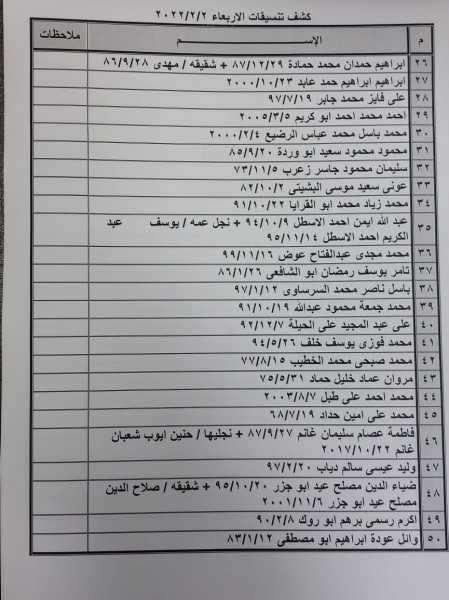 كشف تنسيقات الاربعاء ٢٠٢٢/٢/٢
م الإســـــــم ملاحظات
٢٦ ابراهيم حمدان محمد حمادة ٨٧/١٢/٢٩ + شقيقه / مهدى ٨٦/٩/٢٨
٢٧ ابراهيم ابراهيم حمد عابد ٢٠٠٠/١٠/٢٣
٢٨ على فايز محمد جابر ٩٧/٧/١٩
٢٩ احمد محمد احمد ابو كريم ٢٠٠٥/٣/٥
٣٠ محمد باسل محمد عباس الرضيع ٢٠٠٠/٢/٤
٣١ محمود محمود سعيد ابو وردة ٨٥/٩/٢٠
٣٢ سليمان محمود جاسر زعرب ٧٣/١١/٥
٣٣ عونى سعيد موسى البشيتى ٨٢/١٠/٢
٣٤ محمد زياد محمد ابو القرايا ٩١/١٠/٢٢
٣٥ عبد الله ايمن احمد الاسطل ٩٤/١٠/٩ + نجل عمه / يوسف عبد
الكريم احمد الاسطل ٩٥/١١/١٤
٣٦ محمد مجدى عبدالفتاح عوض ٩٩/١١/١٦
٣٧ تامر يوسف رمضان ابو الشافعى ٨٦/١/٢٦
٣٨ باسل ناصر محمد السرساوى ٩٧/١/١٢
٣٩ محمد جمعة محمود عبدالله ٩١/١٠/١٩
٤٠ على عبد المجيد على الحيلة ٩٢/١٢/٧
٤١ محمد فوزى يوسف خلف ٩٤/٥/٢٦
٤٢ محمد صبحى محمد الخطيب ٧٧/٨/١٥
٤٣ مروان عماد خليل حماد ٧٥/٥/٣١
٤٤ محمد احمد على طبل ٢٠٠٣/٨/٧
٤٥ محمد على امين حداد ٦٨/٧/١٩
٤٦ فاطمة عصام سليمان غانم ٨٧/٩/٢٧ + نجليها / حنين ايوب شعبان
غانم ٢٠١٧/١٠/٢٢
٤٧ وليد عيسى سالم دياب ٩٧/٢/٢٠
٤٨ ضياء الدين مصلح عيد ابو جزر ٩٥/١٠/٢٠ + شقيقه / صلاح الدين
مصلح عيد ابو جزر ٢٠٠١/١١/٦
٤٩ اكرم رسمى برهم ابو روك ٩٠/٢/٨
٥٠ وائل عودة ابراهيم ابو مصطفى ٨٣/١/١٢